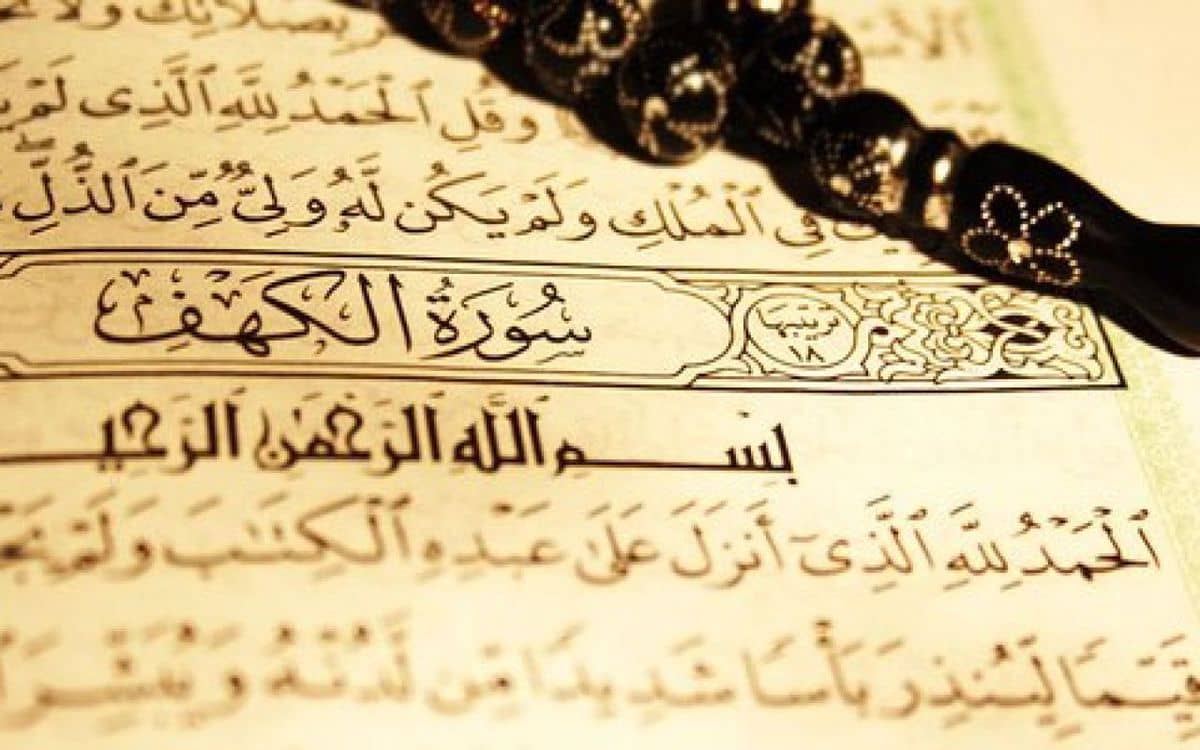 بِصَلَاتِكَ وَلَا
وَقُلِ ٱلْحَمْدُ لِلَّهِ ٱلَّذِى لَمْ
فِى ٱلْمُلْكِ وَلَمْ يَكُن لَّهُۥ وَلِىٌّ مِّنَ ٱلذُّلِّ
سُورَةُ الكَهْفِ
ترتيبها ١٨
بِسْمِ ٱللَّهِ ٱلرَّحْمَٰنِ ٱلرَّحِي
ٱلْحَمْدُ لِلَّهِ ٱلَّذِىٓ أَنزَلَ عَلَىٰ عَبْدِهِ ٱلْكِتَٰبَ وَلَمْ
قَيِّمًا لِّيُنذِرَ بَأْسًا شَدِيدًا مِّن لَّدُنْهُ وَيُبَشِّرَ